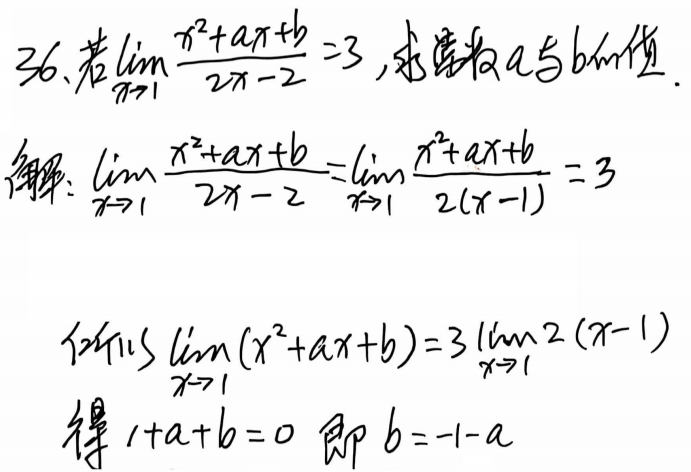 36、若lim x→1 (x²+ax+b)/(2x-2) =3,求常数a与b的值.
解: lim x→1 (x²+ax+b)/(2x-2) = lim x→1 (x²+ax+b)/(2(x-1)) =3
所以 lim x→1 (x²+ax+b)=3 lim x→1 2(x-1)
得 1+a+b=0 即 b=-1-a